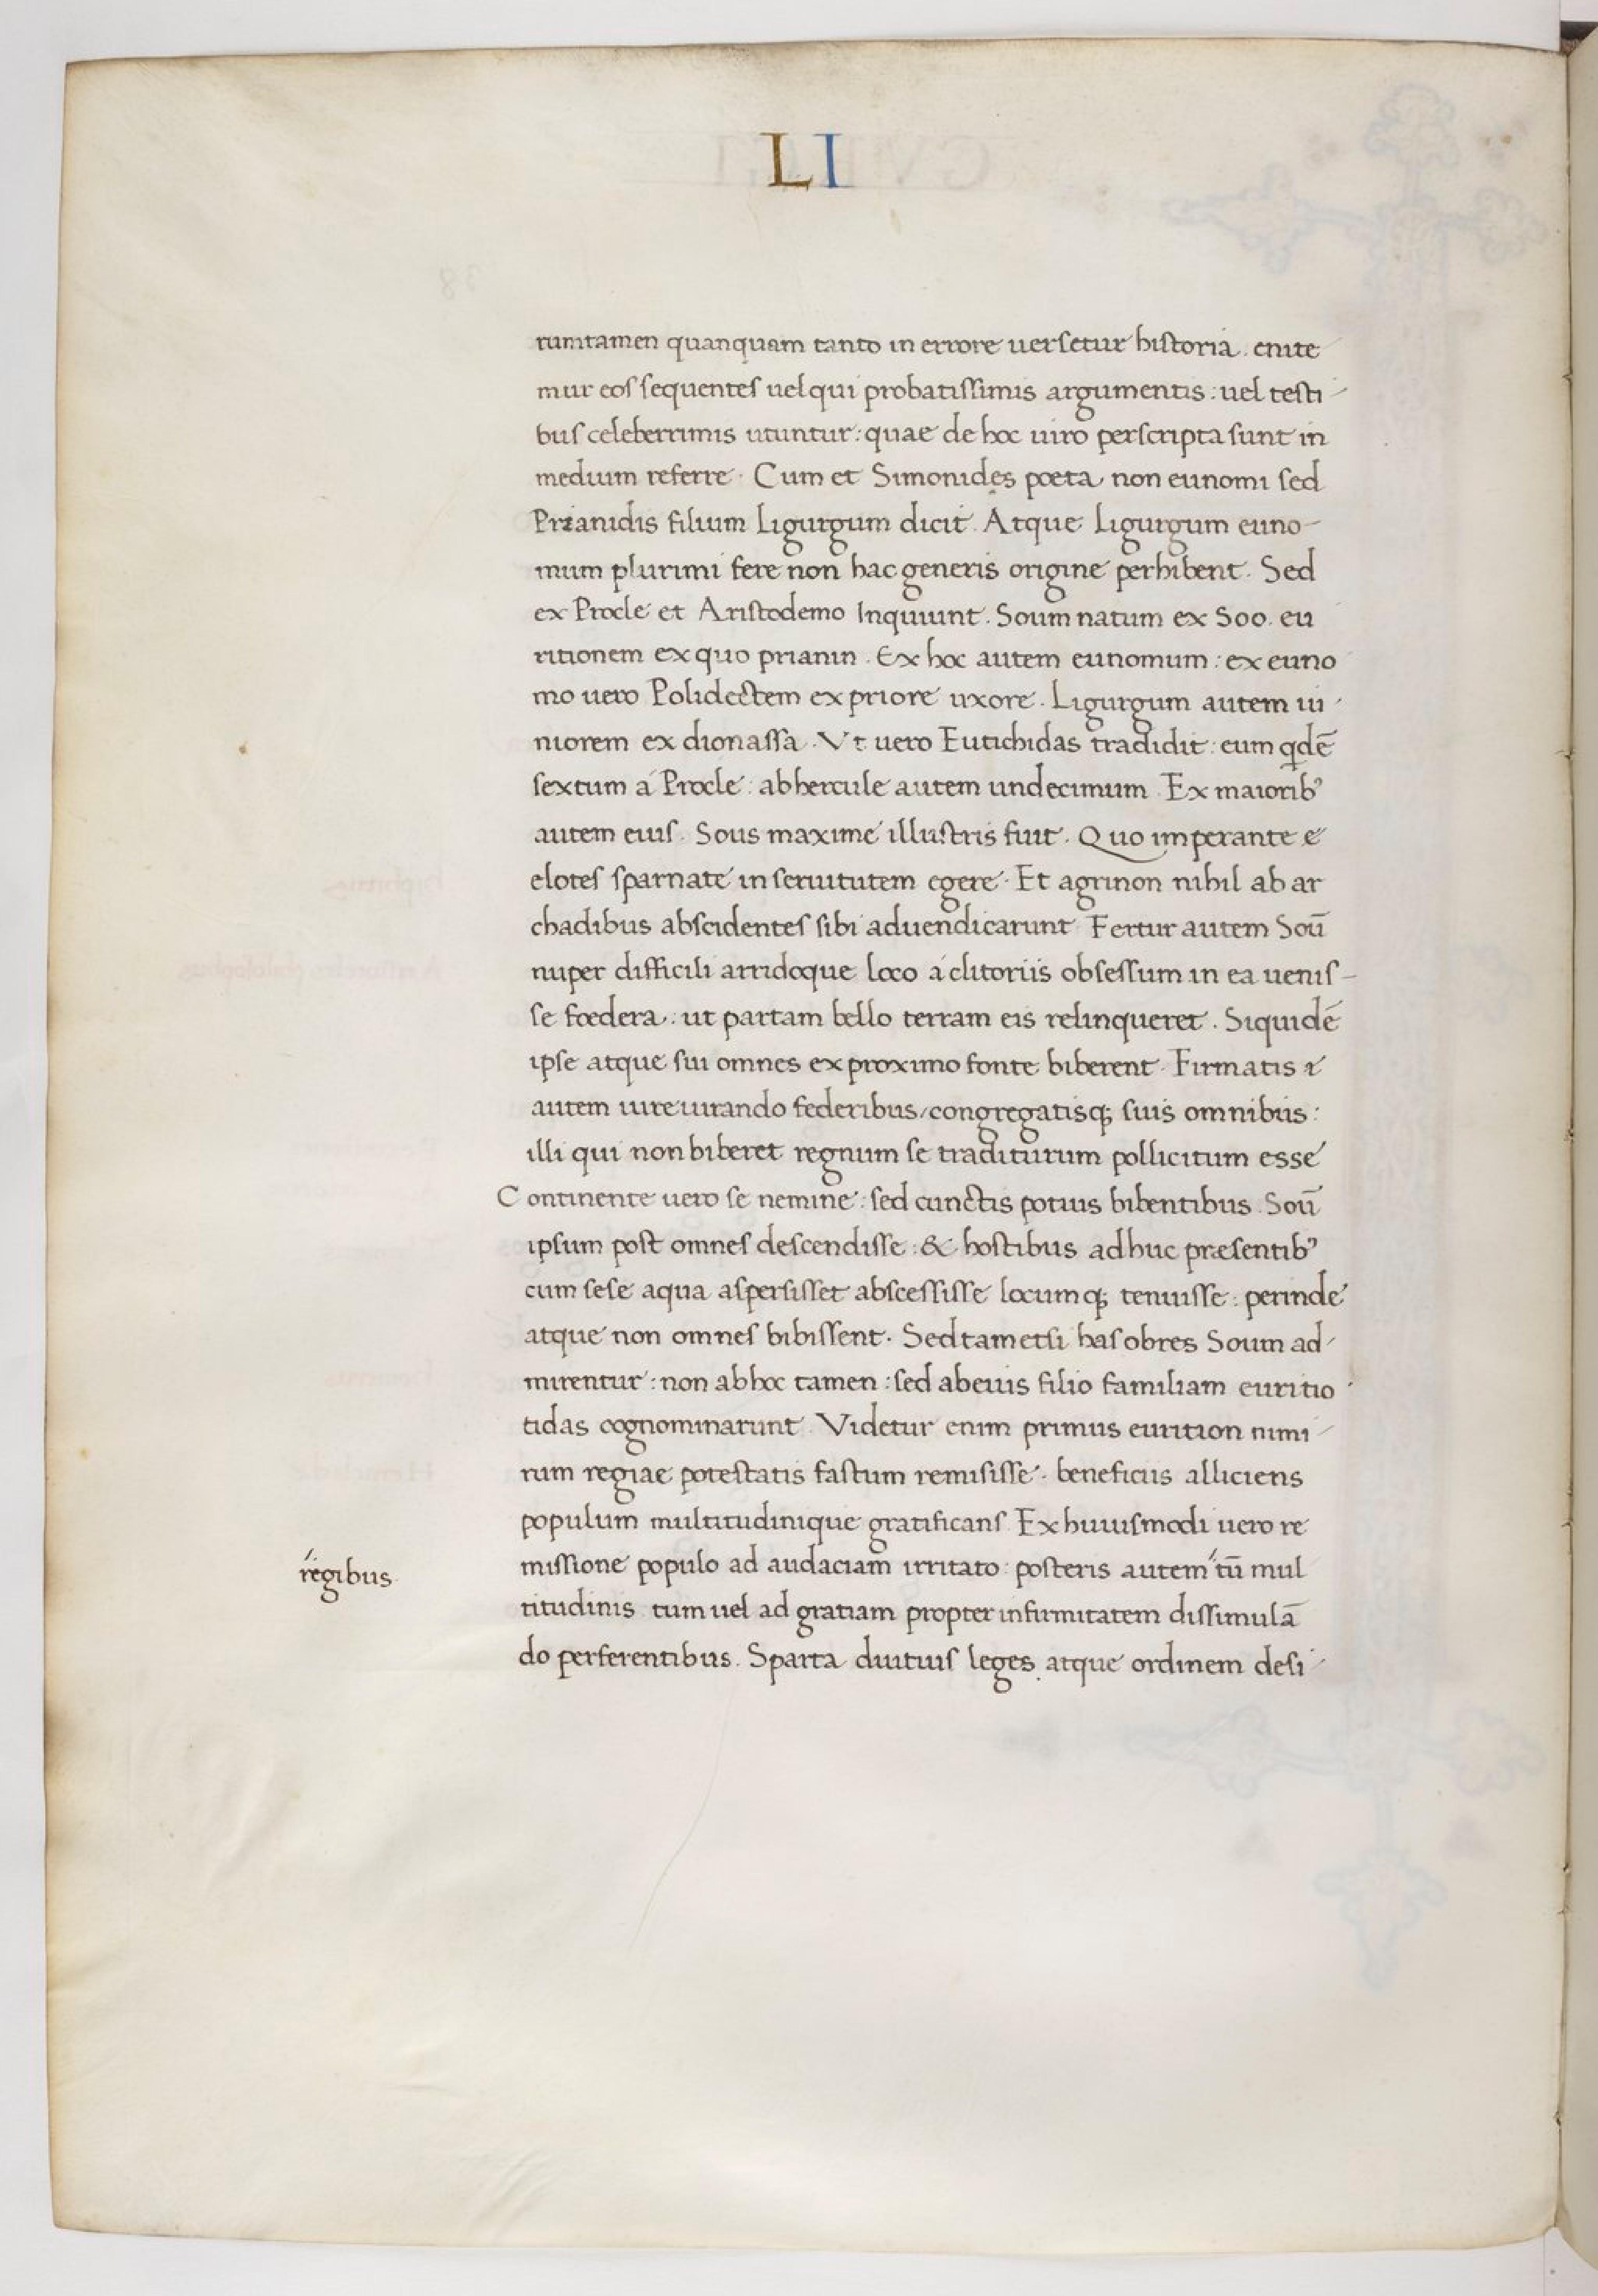 LI
tumtamen quanquam tanto in errore uersetur historia. enite
mur eos sequentes uel qui probatissimis argumentis: uel testi-
bus celeberrimis utuntur: quae de hoc uiro perscripta sunt in
medium referre. Cum et Simonides poeta non eunomi sed
Prianidis filium Ligurgum dicit. Atque Ligurgum euno-
mum plurimi fere non hac generis origine perhibent. Sed
ex Procle et Aristodemo Inquiunt. Soum natum ex Soo. eu
ritionem ex quo prianin. Ex hoc autem eunomum: ex euno
mo uero Polidectem ex priore uxore. Ligurgum autem iu-
niorem ex dionassa. Vt uero Eutichidas tradidit: eum qdē
sextum á Procle: ab hercule autem undecimum. Ex maiorib'
autem eius. Sous maxime illustris fuit. Quo imperante e
elotes sparnate in seruitutem egere. Et agrinon nihil ab ar
chadibus abscidentes sibi aduendicarunt. Fertur autem Soū
nuper difficili arridoque loco á clitoriis obsessum in ea uenis-
se foedera: ut partam bello terram eis relinqueret. Siquidē
ipse atque sui omnes ex proximo fonte biberent. Firmatis
autem iureiurando federibus, congregatisq; suis omnibus:
illi qui non biberet regnum se traditurum pollicitum esse
Continente uero se nemine: sed cunctis potius bibentibus. Soū
ipsum post omnes descendisse: & hostibus adhuc præsentib'
cum sese aqua aspersisset abscessisse locumq; tenuisse: perinde
atque non omnes bibissent. Sed tametsi has obres Soum ad-
mirentur: non ab hoc tamen: sed ab eius filio familiam euritio-
tidas cognominarunt. Videtur enim primus eurition nimi-
rum regiae potestatis fastum remisisse. beneficiis alliciens
populum multitudinique gratificans. Ex huiusmodi uero re
regibus
missione populo ad audaciam irritato: posteris autem tū mul
titudinis tum uel ad gratiam propter infirmitatem dissimulā
do perferentibus. Sparta diutius leges atque ordinem desi-